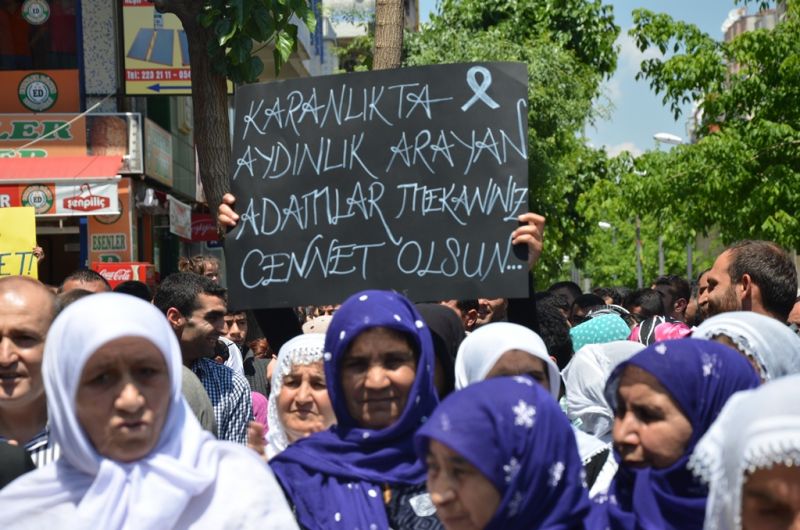 KARANLIKTA
AYDINLIK ARAYAN
ADAMLAR MEKANINIZ
CENNET OLSUN...
Tel: 223 21 11 - 054
ED
LER
ED
şenpiliç
ESENLER
Coca-Cola
ET